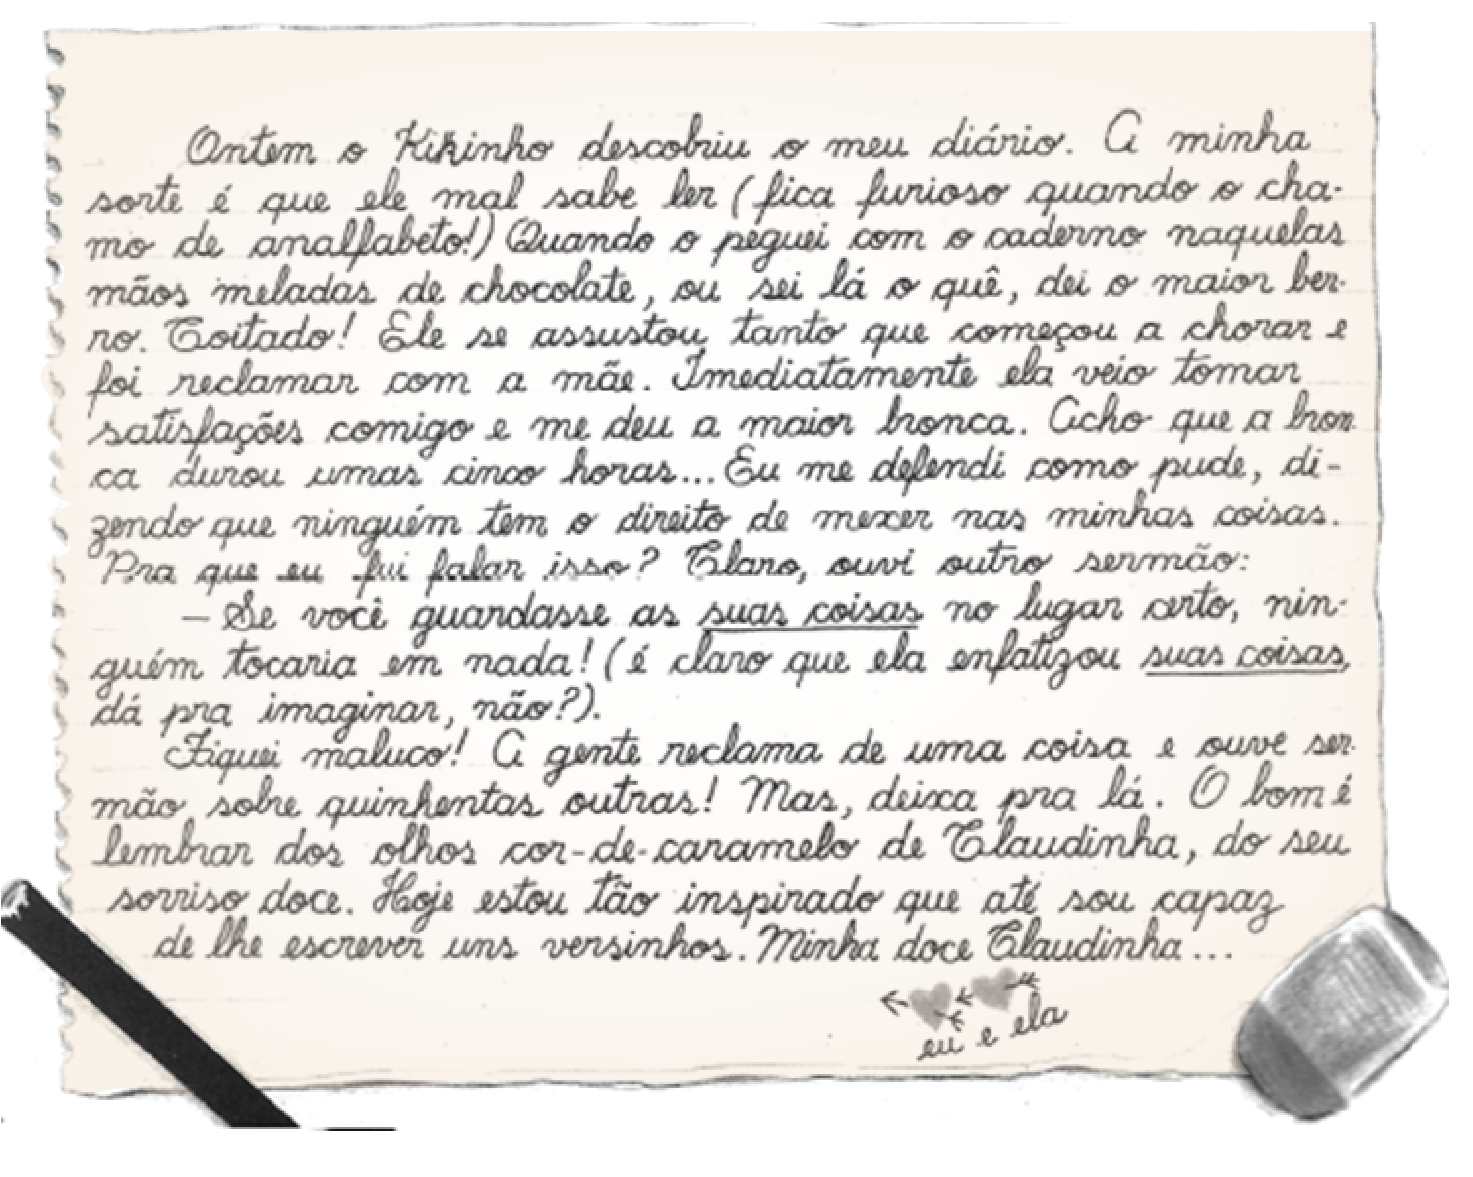 Ontem o Kikinho descobriu o meu diário. A minha
sorte é que ele mal sabe ler (fica furioso quando o cha-
mo de analfabeto!) Quando o peguei com o caderno naquelas
mãos meladas de chocolate, ou sei lá o quê, dei o maior ber-
ro. Coitado! Ele se assustou tanto que começou a chorar e
foi reclamar com a mãe. Imediatamente ela veio tomar
satisfações comigo e me deu a maior bronca. Acho que a bron
ca durou umas cinco horas... Eu me defendi como pude, di-
zendo que ninguém tem o direito de mexer nas minhas coisas.
Pra que eu fui falar isso? Claro, ouvi outro sermão:
— Se você guardasse as suas coisas no lugar certo, nin-
guém tocaria em nada! (é claro que ela enfatizou suas coisas,
dá pra imaginar, não?).
Fiquei maluco! A gente reclama de uma coisa e ouve ser-
mão sobre quinhentas outras! Mas, deixa pra lá. O bom é
lembrar dos olhos cor-de-caramelo de Claudinha, do seu
sorriso doce. Hoje estou tão inspirado que até sou capaz
de lhe escrever uns versinhos. Minha doce Claudinha...
eu e ela